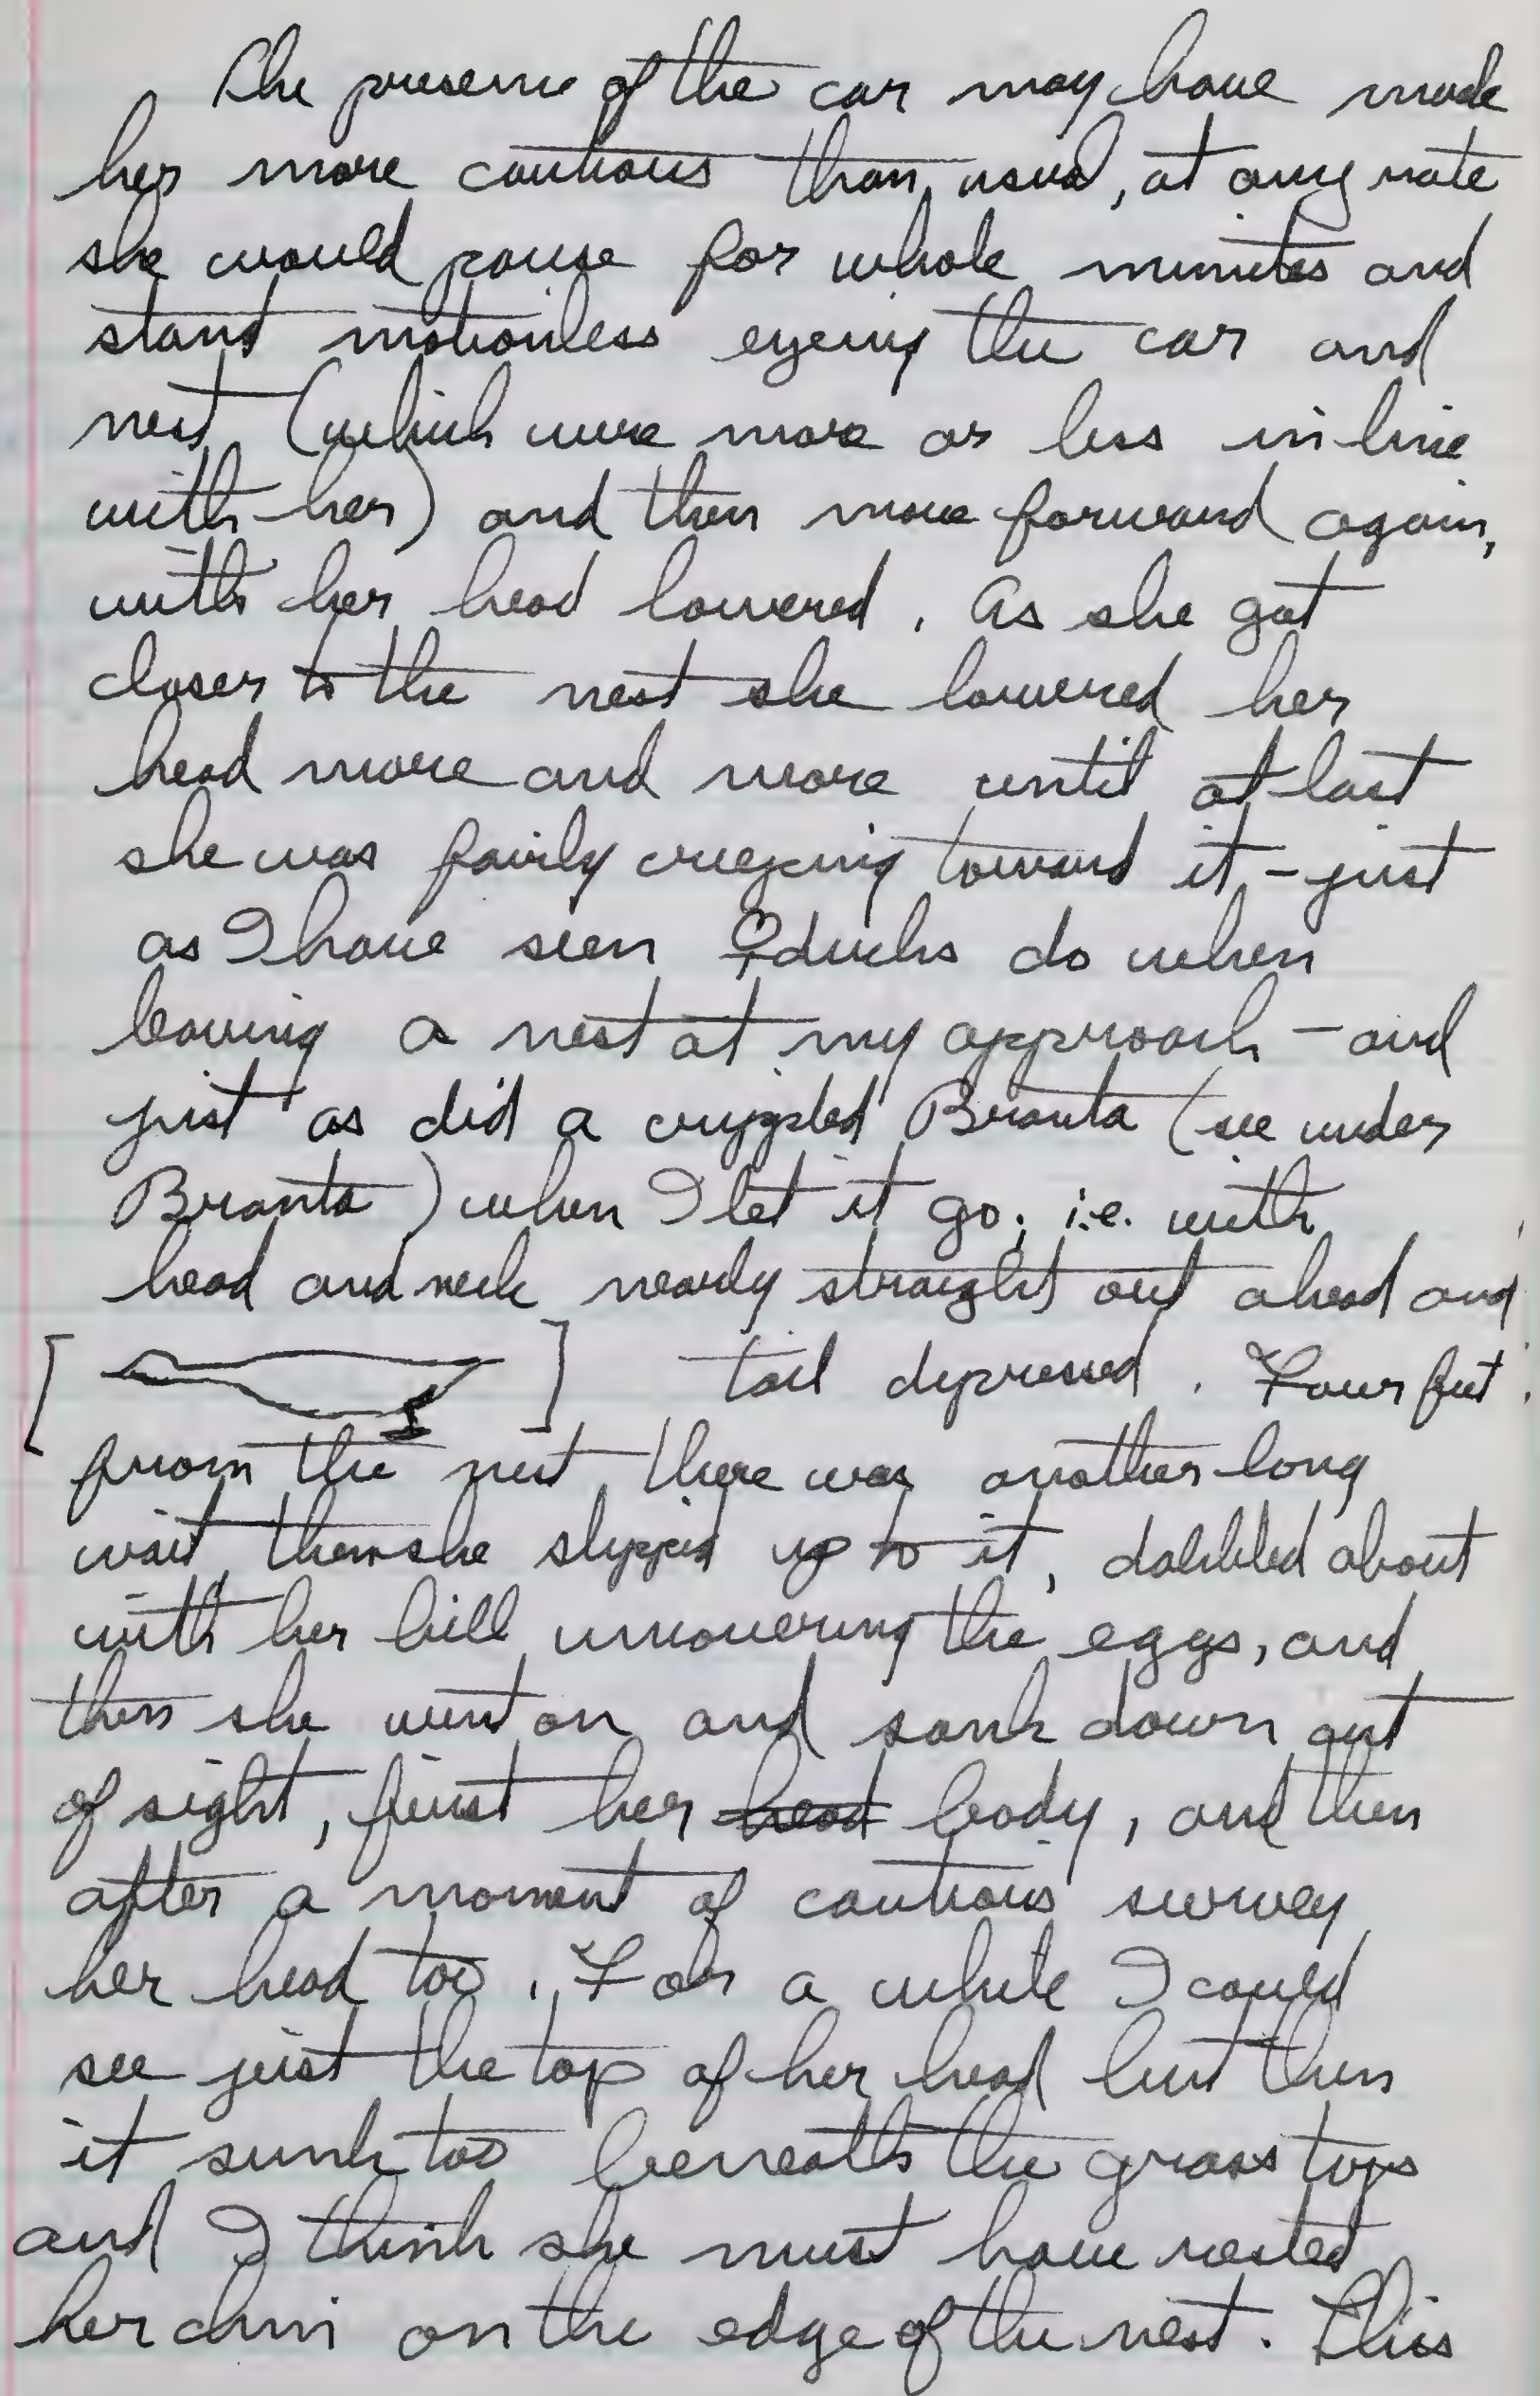 The presence of the car may have made
her more cautious than usual, at any rate
she would pause for whole minutes and
stand motionless eyeing the car and
nest (which were more or less in line
with her) and then move forward again,
with her head lowered. As she got
closer to the nest she lowered her
head more and more until at last
she was fairly creeping toward it, - just
as I have seen ♀ ducks do when
leaving a nest at my approach - and
just as did a crippled Branta (see under
Branta) when I let it go; i.e. with
head and neck nearly straight out ahead and
[ ] tail depressed. Four feet
from the nest there was another long
wait, then she slipped up to it, dabbled about
with her bill uncovering the eggs, and
then she went on and sank down out
of sight, first her head body, and then
after a moment of cautious survey
her head too. For a while I could
see just the top of her head but then
it sunk too beneath the grass tops
and I think she must have rested
her chin on the edge of the nest. This